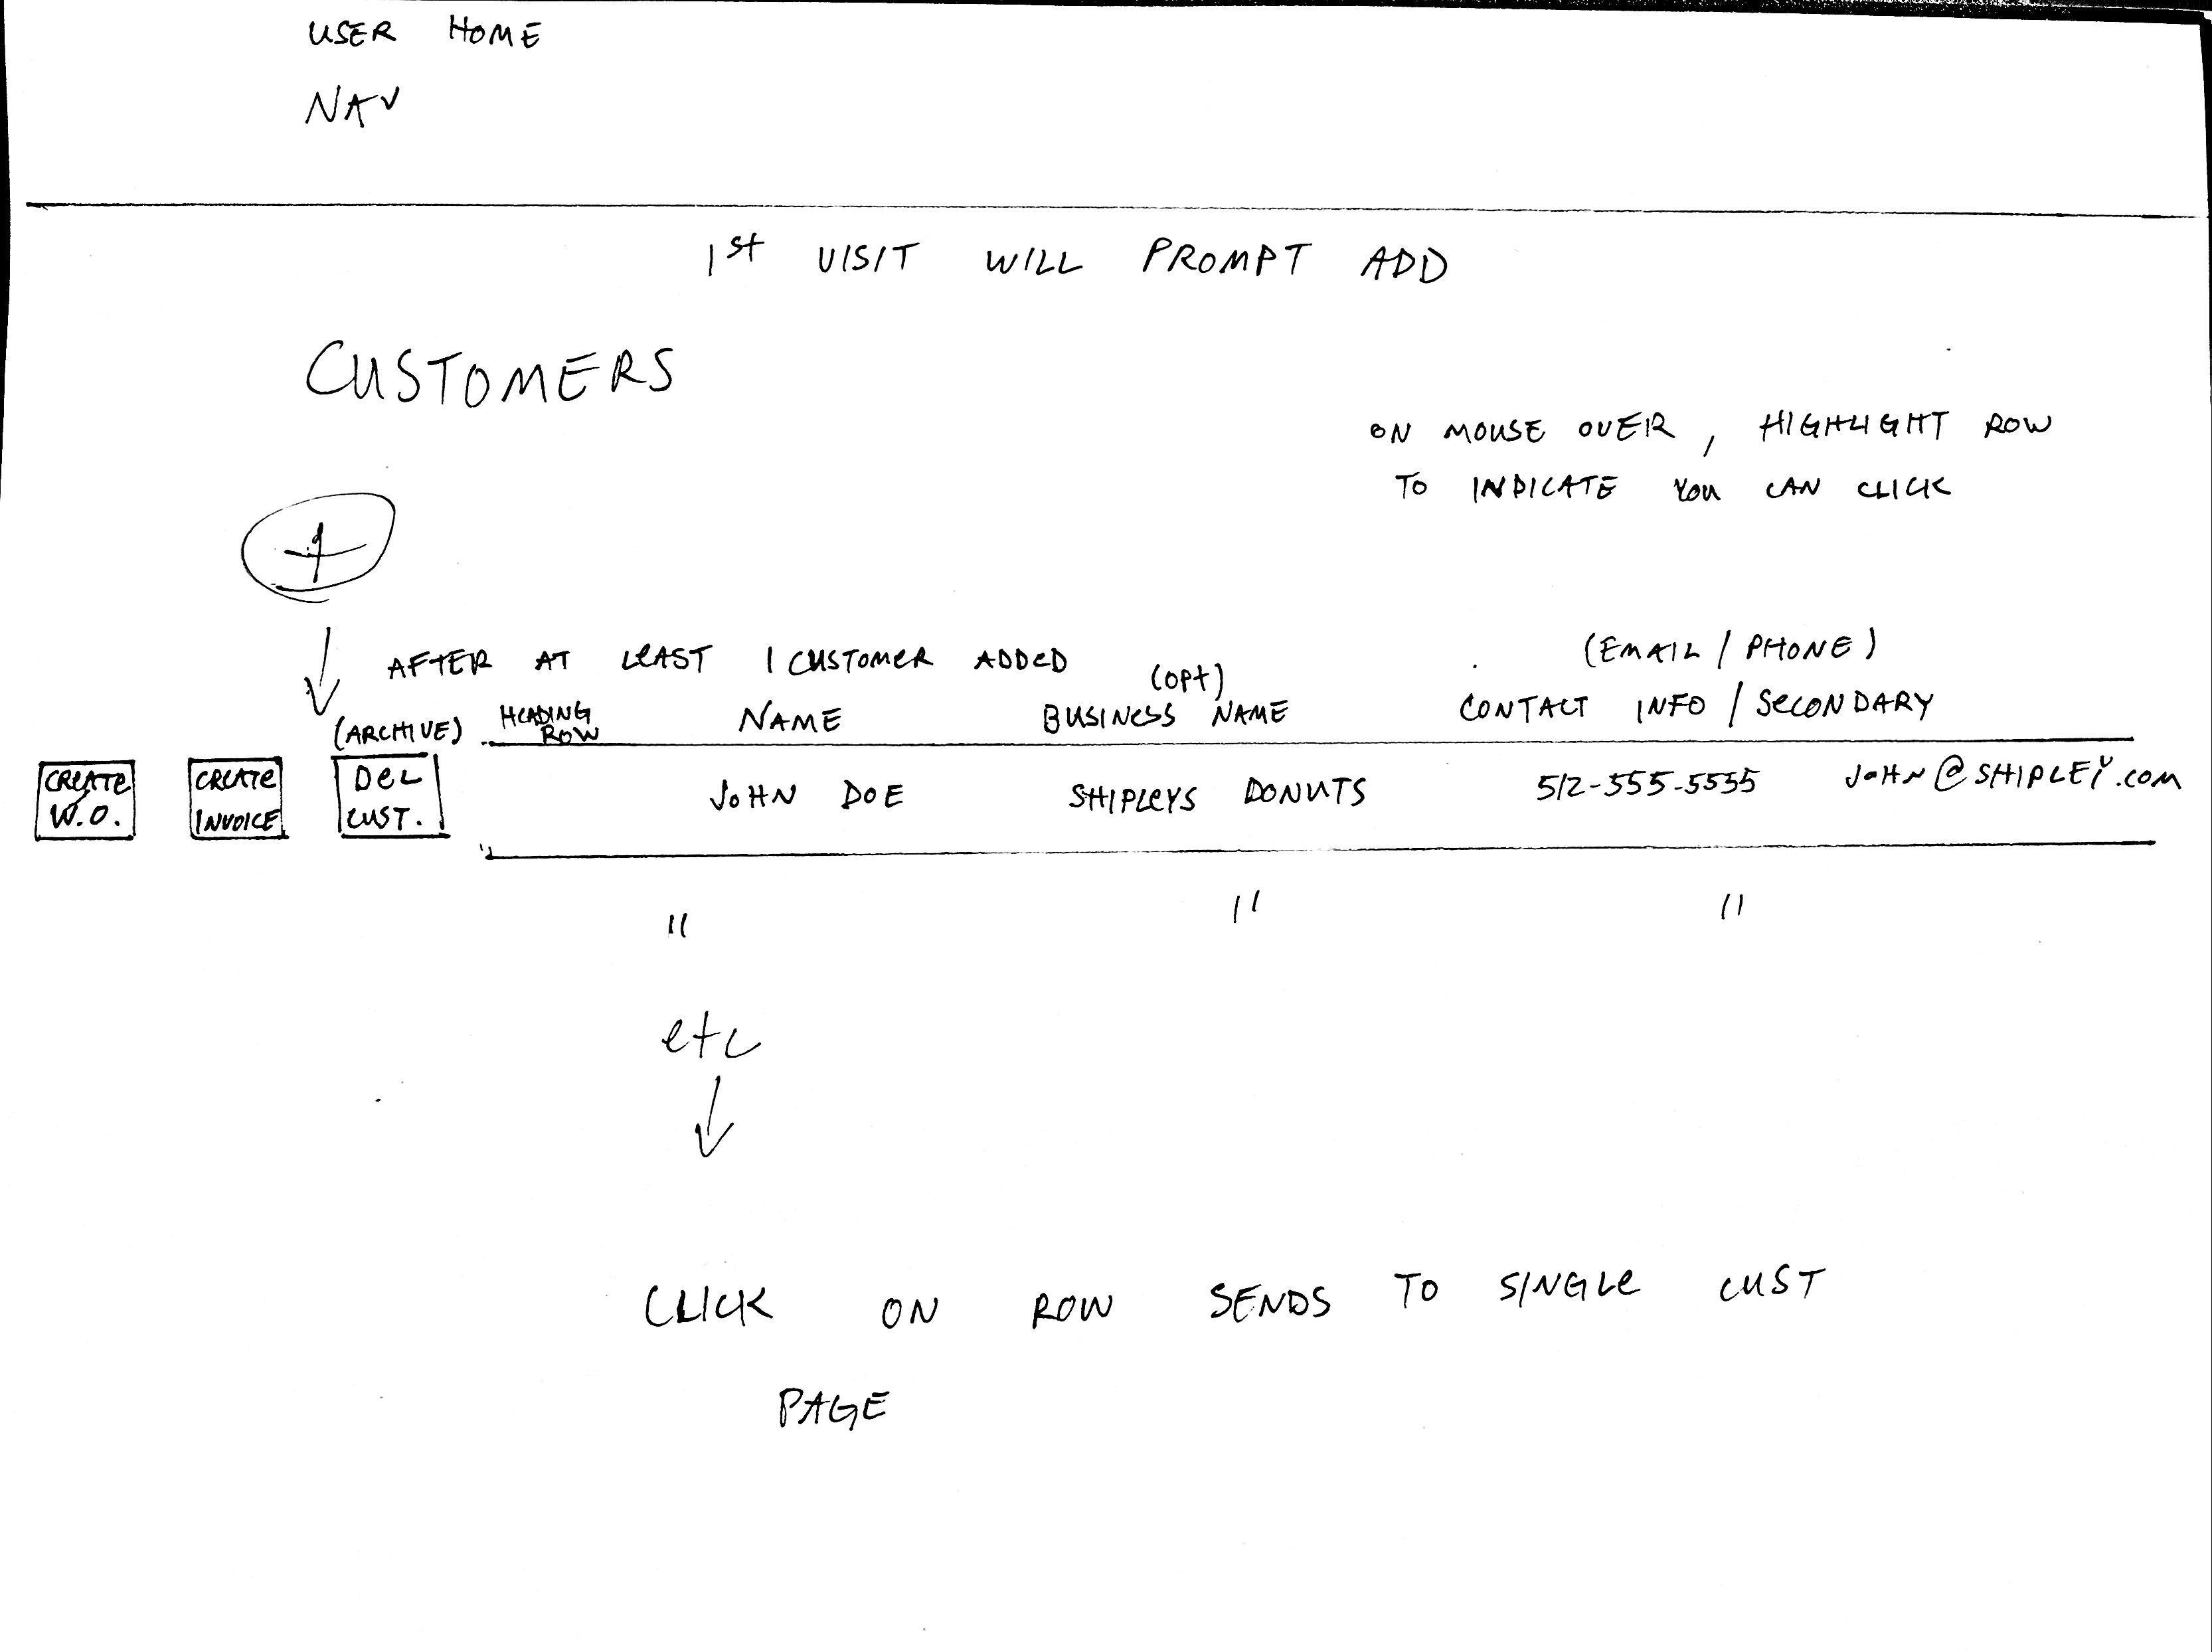 USER HOME
NAV
1st VISIT WILL PROMPT ADD
CUSTOMERS
ON MOUSE OVER, HIGHLIGHT ROW
TO INDICATE YOU CAN CLICK
+
AFTER AT LEAST 1 CUSTOMER ADDED
(ARCHIVE) HEADING ROW NAME (OPT) BUSINESS NAME (EMAIL / PHONE) CONTACT INFO / SECONDARY
CREATE W.O. CREATE INVOICE DEL CUST. JOHN DOE SHIPLEYS DONUTS 512-555-5555 JOHN@SHIPLEY.COM
" " "
etc
CLICK ON ROW SENDS TO SINGLE CUST
PAGE